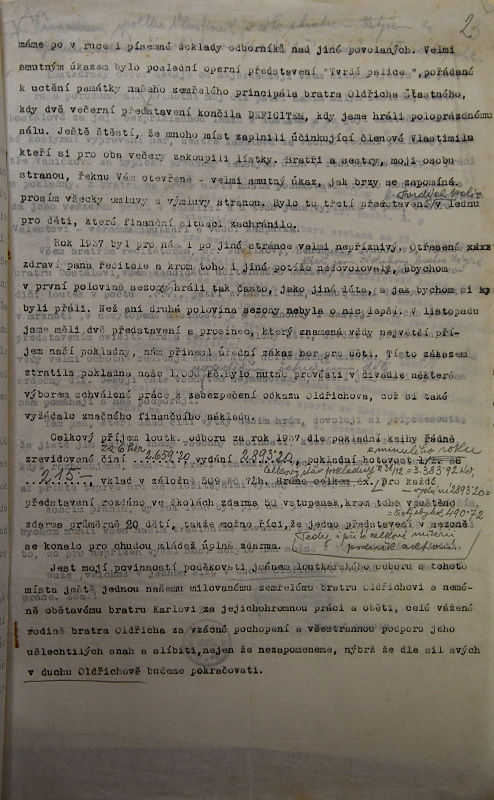 23
máme po v ruce i písemné doklady odborníků nad jiné povolaných. Velmi
smutným úkazem bylo poslední operní představení "Tvrdé palice", pořádané
k uctění památky našeho zemřelého principála bratra Oldřicha Šťastného,
kdy dvě večerní představení končila DEFICITEM, kdy jsme hráli poloprázdnému
sálu. Ještě štěstí, že mnoho míst zaplnili účinkující členové Vlastimilu
kteří si pro oba večery zakoupili lístky. Bratři a sestry, moji osobu
stranou, řeknu Vám otevřeně - velmi smutný úkaz, jak brzy se zapomíná.
prosím všecky omluvy a výmluvy stranou. Bylo to třetí představení v lednu
pro děti, které finanční situaci zachránilo.
Rok 1937 byl pro nás i po jiné stránce velmi nepříznivý. Otřesené
zdraví pana ředitele a krom toho i jiná potíže nedovolovaly, abychom
v první polovině sezony hráli tak často, jako jiná léta, a jak bychom si
byli přáli. Než ani druhá polovina sezony nebyla o nic lepší. V listopadu
jsme měli dvě představení a prosinec, který znamená vždy největší pří-
jem naší pokladny, nám přinesl úřední zákaz her pro děti. Tímto zákazem
ztratila pokladna naše 1,000 Kč. bylo nutno prováěti v divadle některé
výborem schválené práce k zabezpečení odkazu Oldřichova, což si také
vyžádalo značného finančního nákladu.
Celkový příjem loutk. odboru za rok 1937 dle pokladní knihy řádně
z minulého roku
za 6 her
zrevidované činí 2.659'20, vydání 2.893'20, pokladní hotovost
Celkový stav pokladny k 31/12 = 3.383'92 Kč,
215-, vklad v záložně 509 Kč 72h. Hráno celkem 6x. Pro každé
představení rozdáno ve školách zdarma 50 vstupenek, krom toho vpuštěno
zdarma průměrně 20 dětí, takže možno říci, že jedno představení v sezoně
se konalo pro chudou mládež úplně zdarma.
Tedy i při té celkové
Jest mojí povinností poděkovati jménem loutkářského odboru s tohoto
místa ještě jednou našemu milovanému zemřelému bratru Oldřichovi a nemé-
ně obětavému bratru Karlovi za jejichohromnou práci a oběti, celé vážené
rodině bratra Oldřicha za vzácné pochopení a všestrannou podporu jeho
ušlechtilých snah a slíbiti, nejen že nezapomeneme, nýbrž že dle sil svých
v duchu Oldřichově budeme pokračovati.